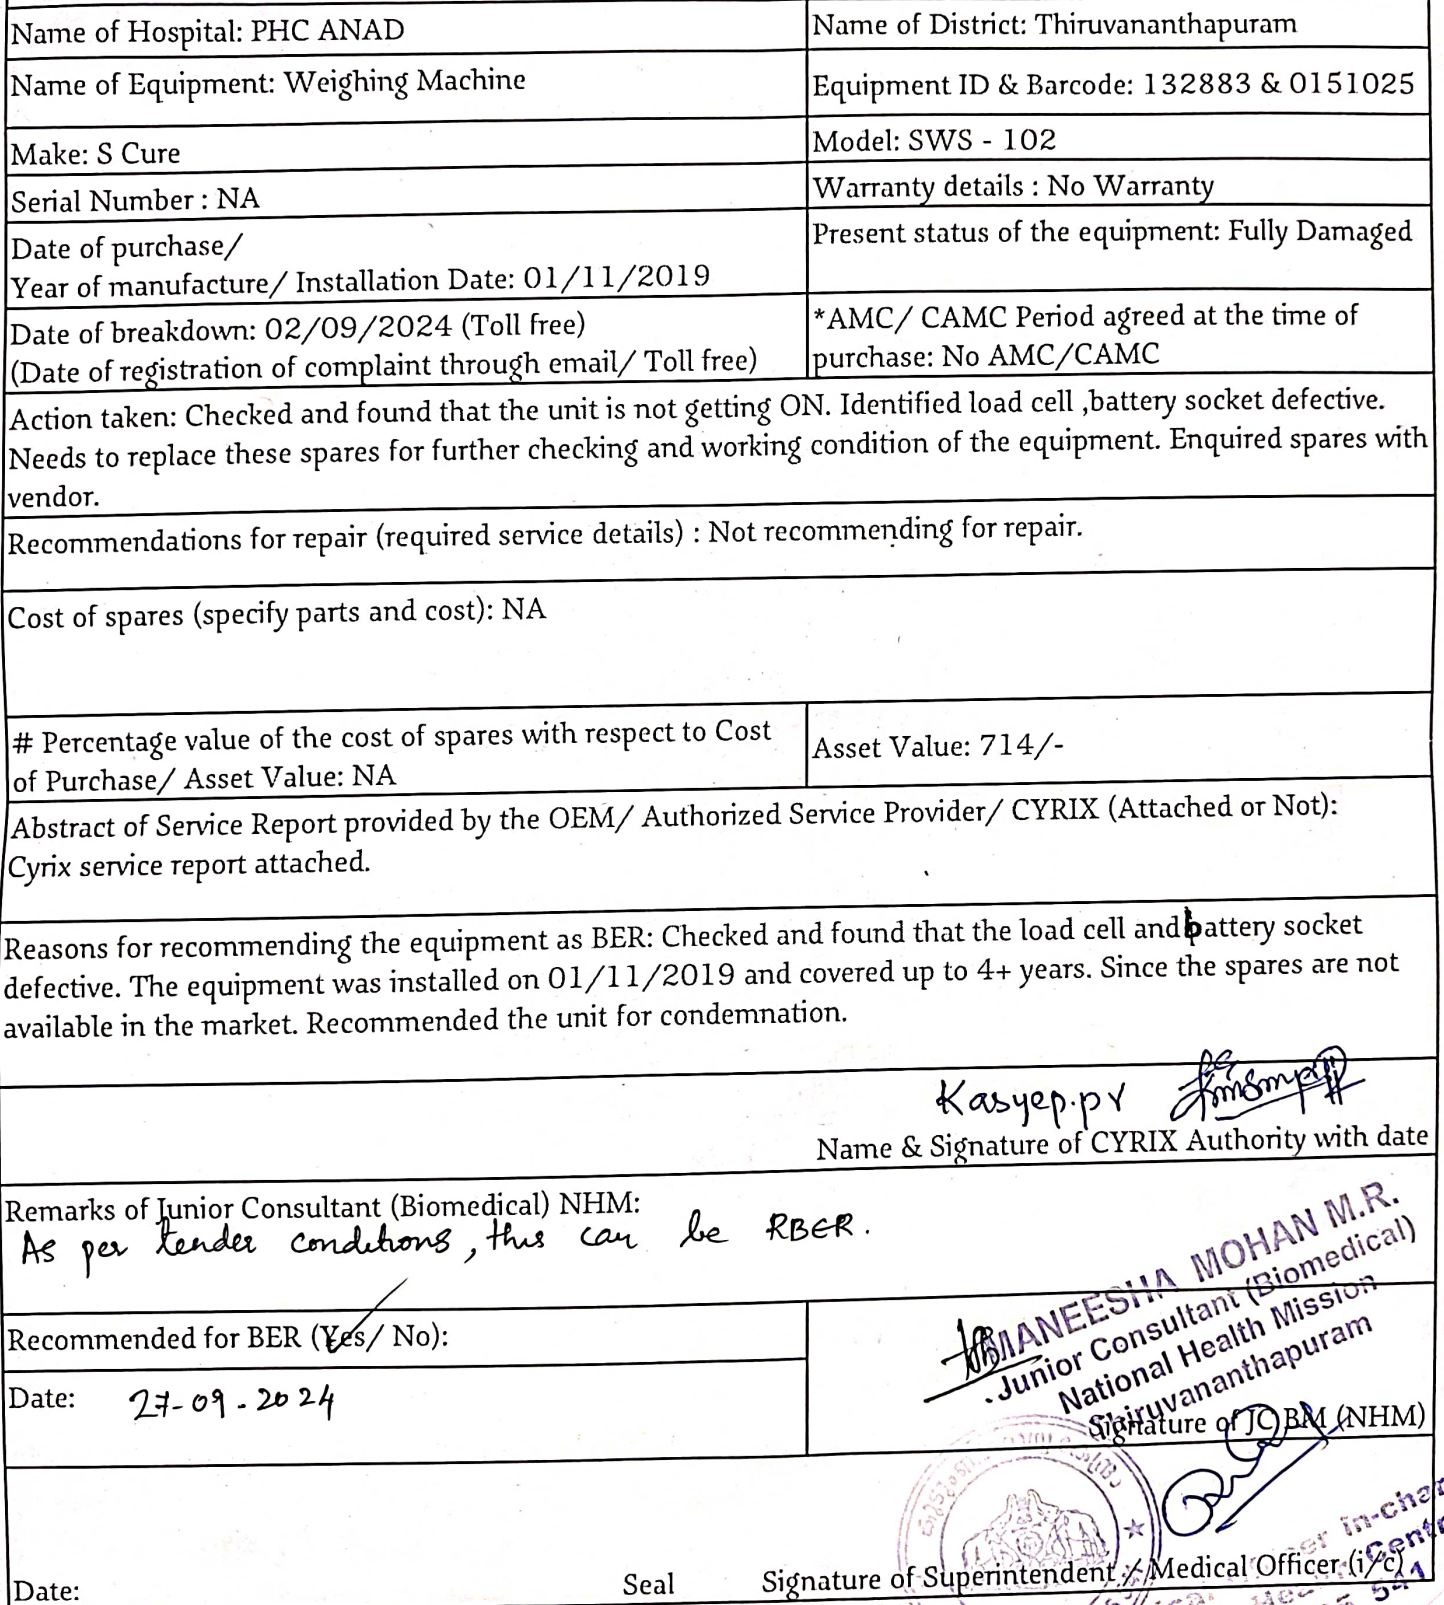 Name of Hospital: PHC ANAD
Name of District: Thiruvananthapuram
Name of Equipment: Weighing Machine
Equipment ID & Barcode: 132883 & 0151025
Make: S Cure
Model: SWS - 102
Serial Number : NA
Warranty details : No Warranty
Date of purchase/
Year of manufacture/ Installation Date: 01/11/2019
Present status of the equipment: Fully Damaged
Date of breakdown: 02/09/2024 (Toll free)
(Date of registration of complaint through email/ Toll free)
*AMC/ CAMC Period agreed at the time of
purchase: No AMC/CAMC
Action taken: Checked and found that the unit is not getting ON. Identified load cell ,battery socket defective.
Needs to replace these spares for further checking and working condition of the equipment. Enquired spares with
vendor.
Recommendations for repair (required service details) : Not recommending for repair.
Cost of spares (specify parts and cost): NA
# Percentage value of the cost of spares with respect to Cost
of Purchase/ Asset Value: NA
Asset Value: 714/-
Abstract of Service Report provided by the OEM/ Authorized Service Provider/ CYRIX (Attached or Not):
Cyrix service report attached.
Reasons for recommending the equipment as BER: Checked and found that the load cell and battery socket
defective. The equipment was installed on 01/11/2019 and covered up to 4+ years. Since the spares are not
available in the market. Recommended the unit for condemnation.
Kasyep.pv
Name & Signature of CYRIX Authority with date
Remarks of Junior Consultant (Biomedical) NHM:
As per tender conditions, this can be RBER.
MANEESHA MOHAN M.R.
Junior Consultant (Biomedical)
National Health Mission
Thiruvananthapuram
Recommended for BER (Yes/ No):
Date: 27-09-2024
Signature of JC BM (NHM)
in-char
Centr
541
Date:
Seal
Signature of Superintendent / Medical Officer (i/c)